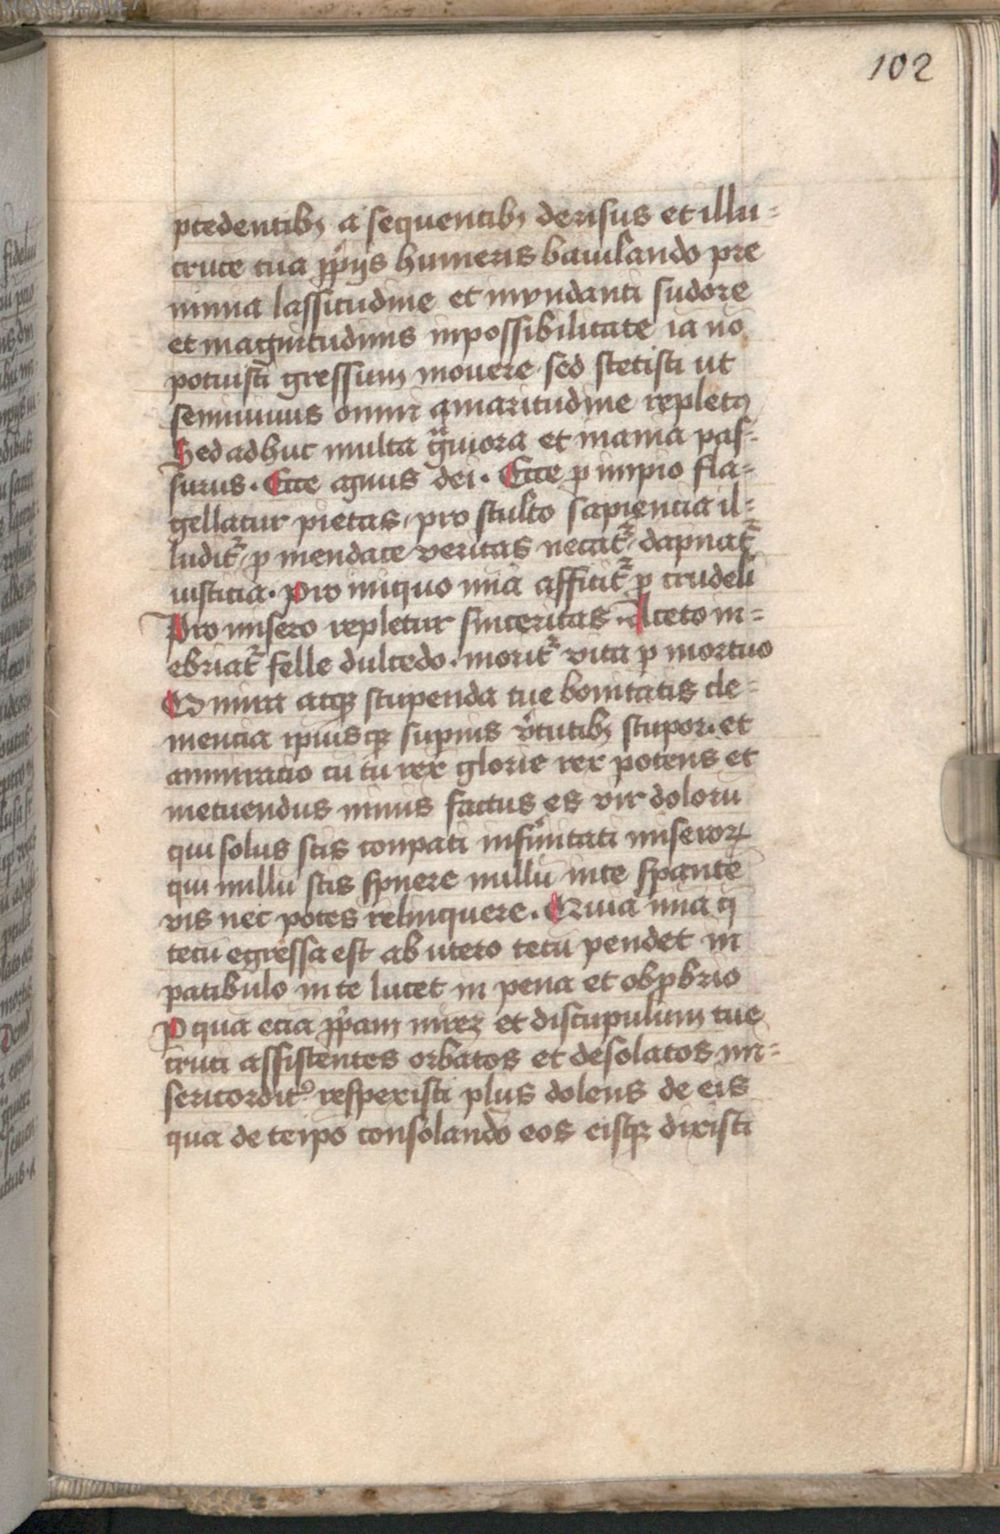 102
pcedentibꝫ a sequentibꝫ derisus et illu=
cruce tua ꝓpͥis humeris baiulando pre
nimia lassitudine et inundanti sudore
et magnitudinis inpossibilitate iā nō
potuisti gressum mouere sed stetisti ut
semiuiuus omni amaritudine repletꝰ
Sed adhuc multa gͣuiora et maiora pas=
surus. Ecce agnus dei. Ecce ꝓ impio fla=
gellatur pietas, pro stulto sapiencia il=
luditᷣ, ꝓ mendace veritas necatᷣ, dāpnatᷣ
iusticia. Pro iniquo mīa afficitᷣ ꝓ crudeli
Pro misero repletur sinceritas. Aceto in=
ebriatᷣ felle dulcedo. moritᷣ vita ꝓ mortuo
O mira atqꝫ stupenda tue bonitatis cle=
mencia ipiusqꝫ supnis vͥtutibꝫ stupor. et
ammiratio cū tu rex glorie rex potens et
metuendus nimis factus es vir dolorū
qui solus scis conpati infͥmitati miseroꝝ
qui nullū scis spnere nullū in te spantē
vis nec potes relinquere. Quia mīa q̄
tecū egressa est ab utero tecū pendet in
patibulo in te lucet in pena et obꝓbrio
P quā eciā ꝓpͥam mr̄eꝫ et discipulum tue
cruci assistentes orbatos et desolatos mi=
sericorditͥ respexisti plus dolens de eis
quā de teipō consolando eos eisqꝫ dixisti